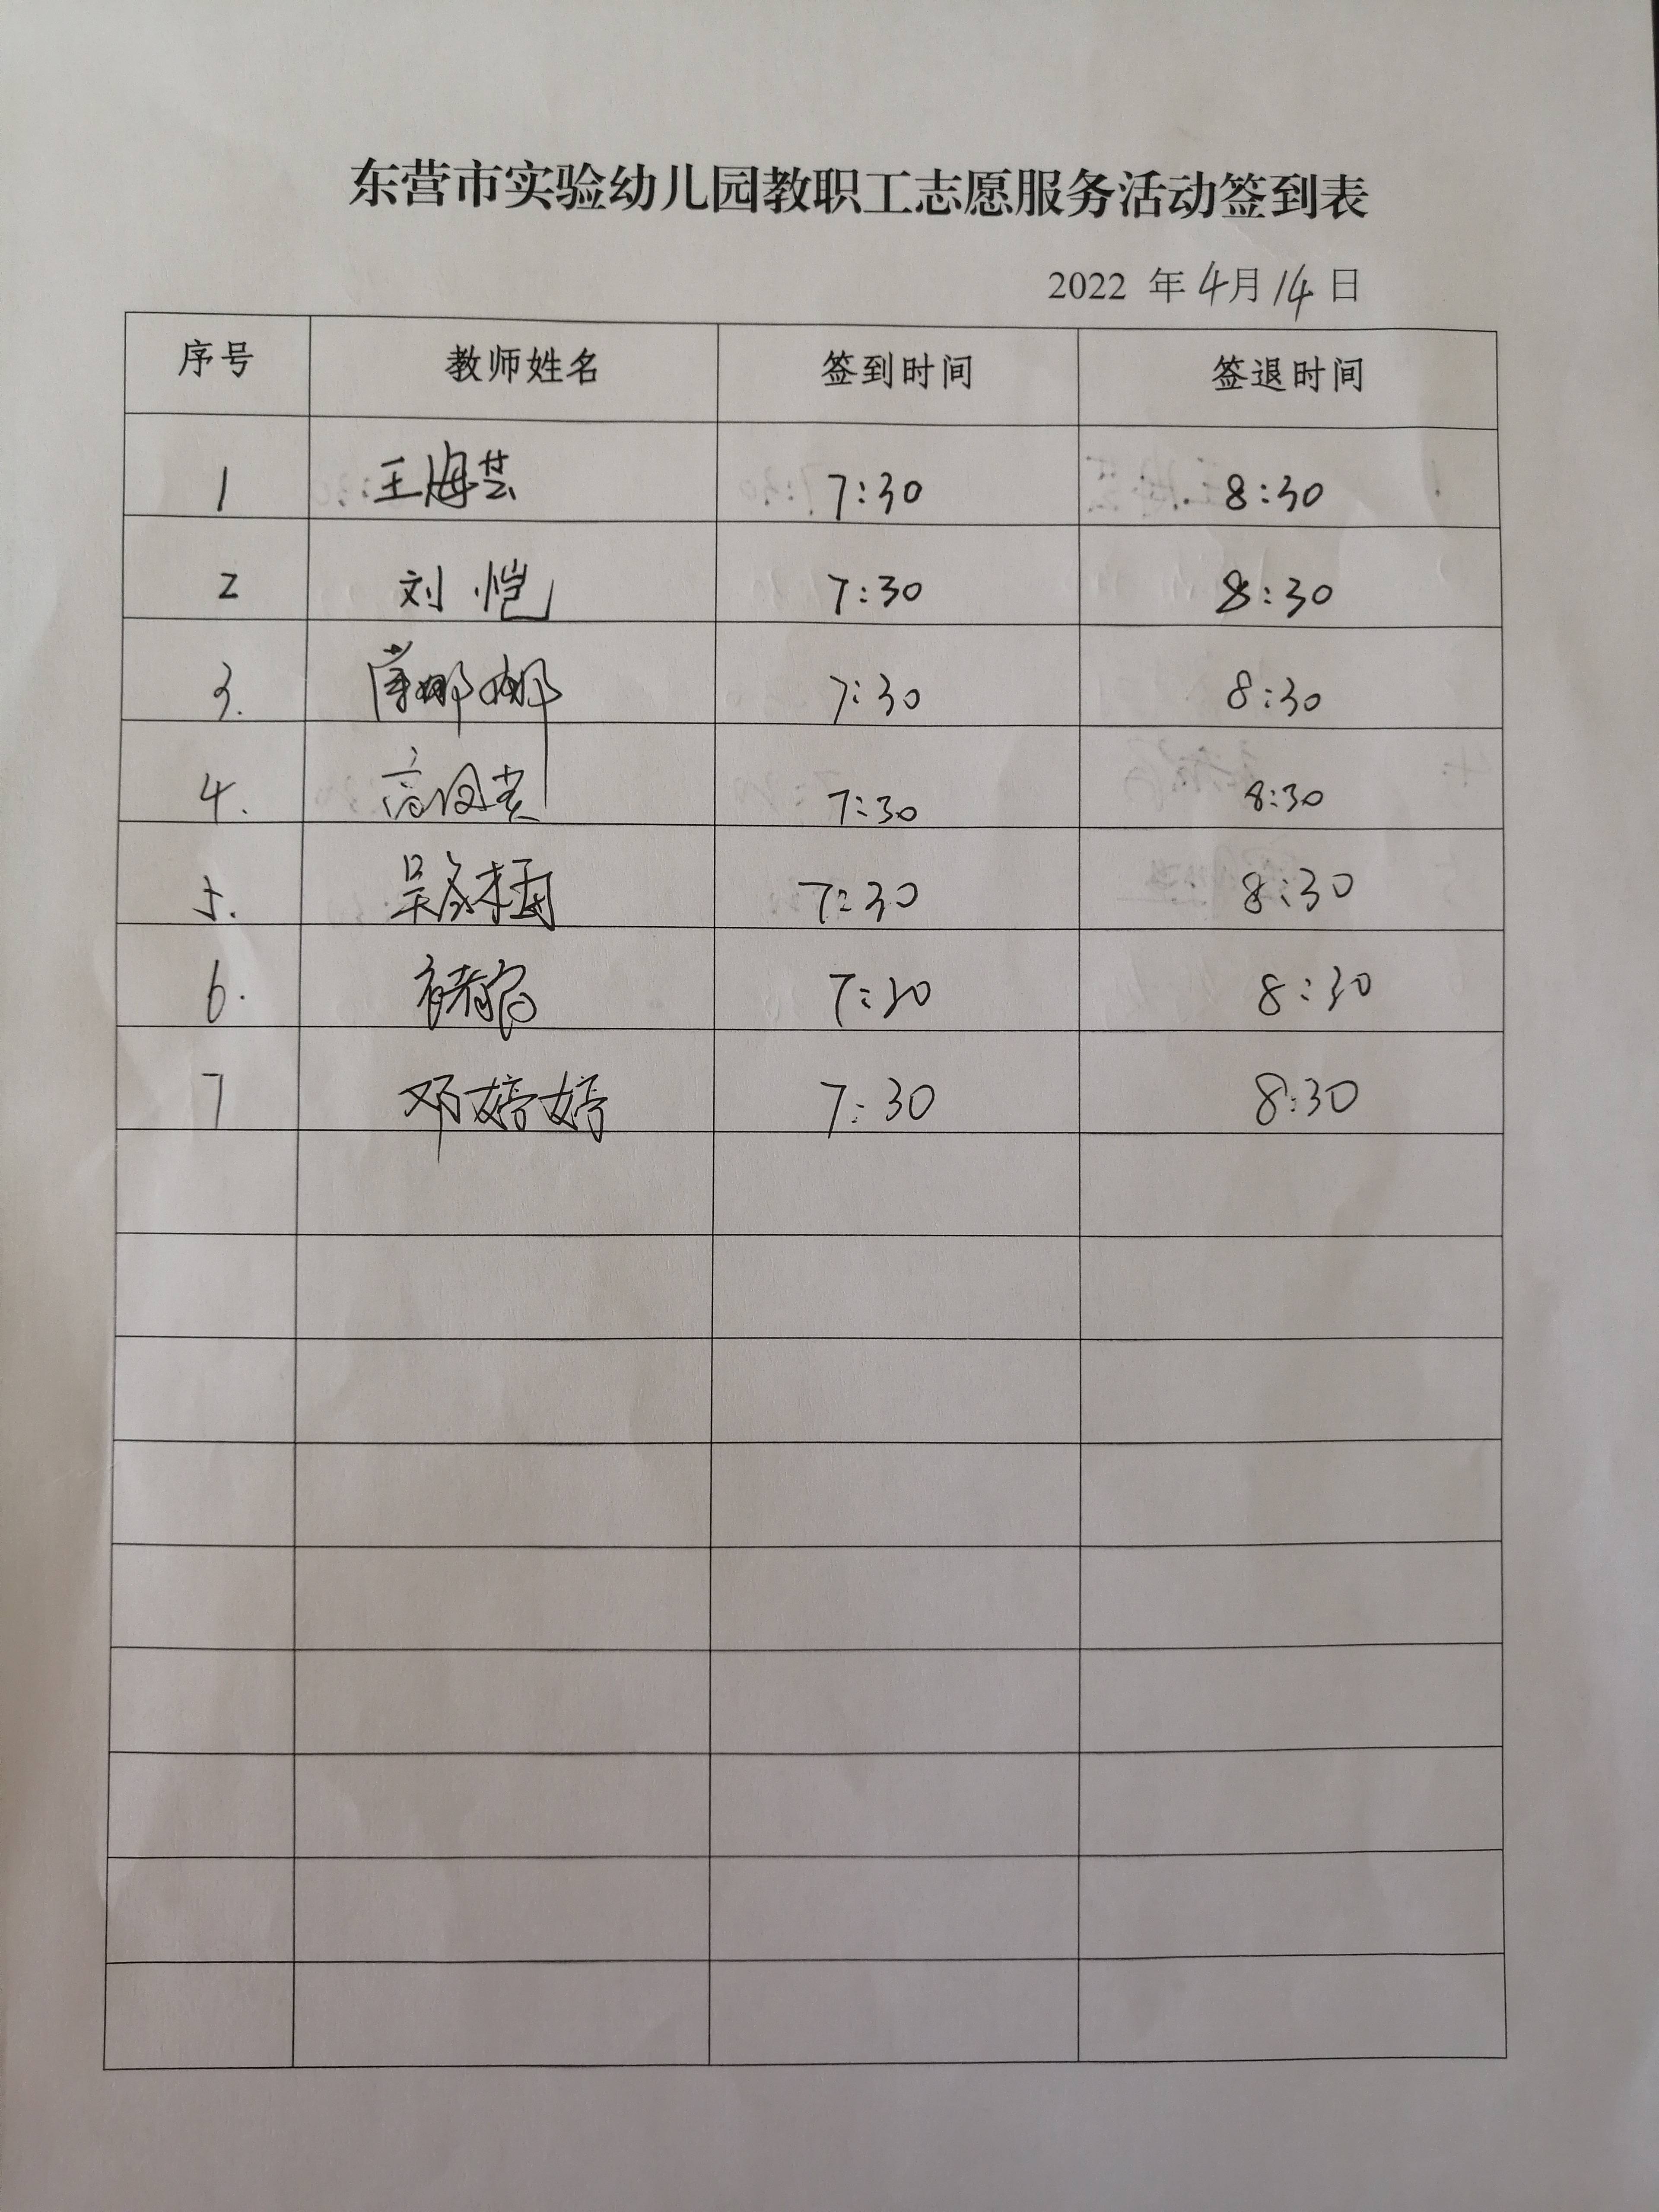 东营市实验幼儿园教职工志愿服务活动签到表
2022 年 4月 14 日
序号 教师姓名 签到时间 签退时间
1 王海芸 7:30 8:30
2 刘恺 7:30 8:30
3. 7:30 8:30
4. 7:30 8:30
5. 7:30 8:30
6. 7:30 8:30
7 邓婷婷 7:30 8:30